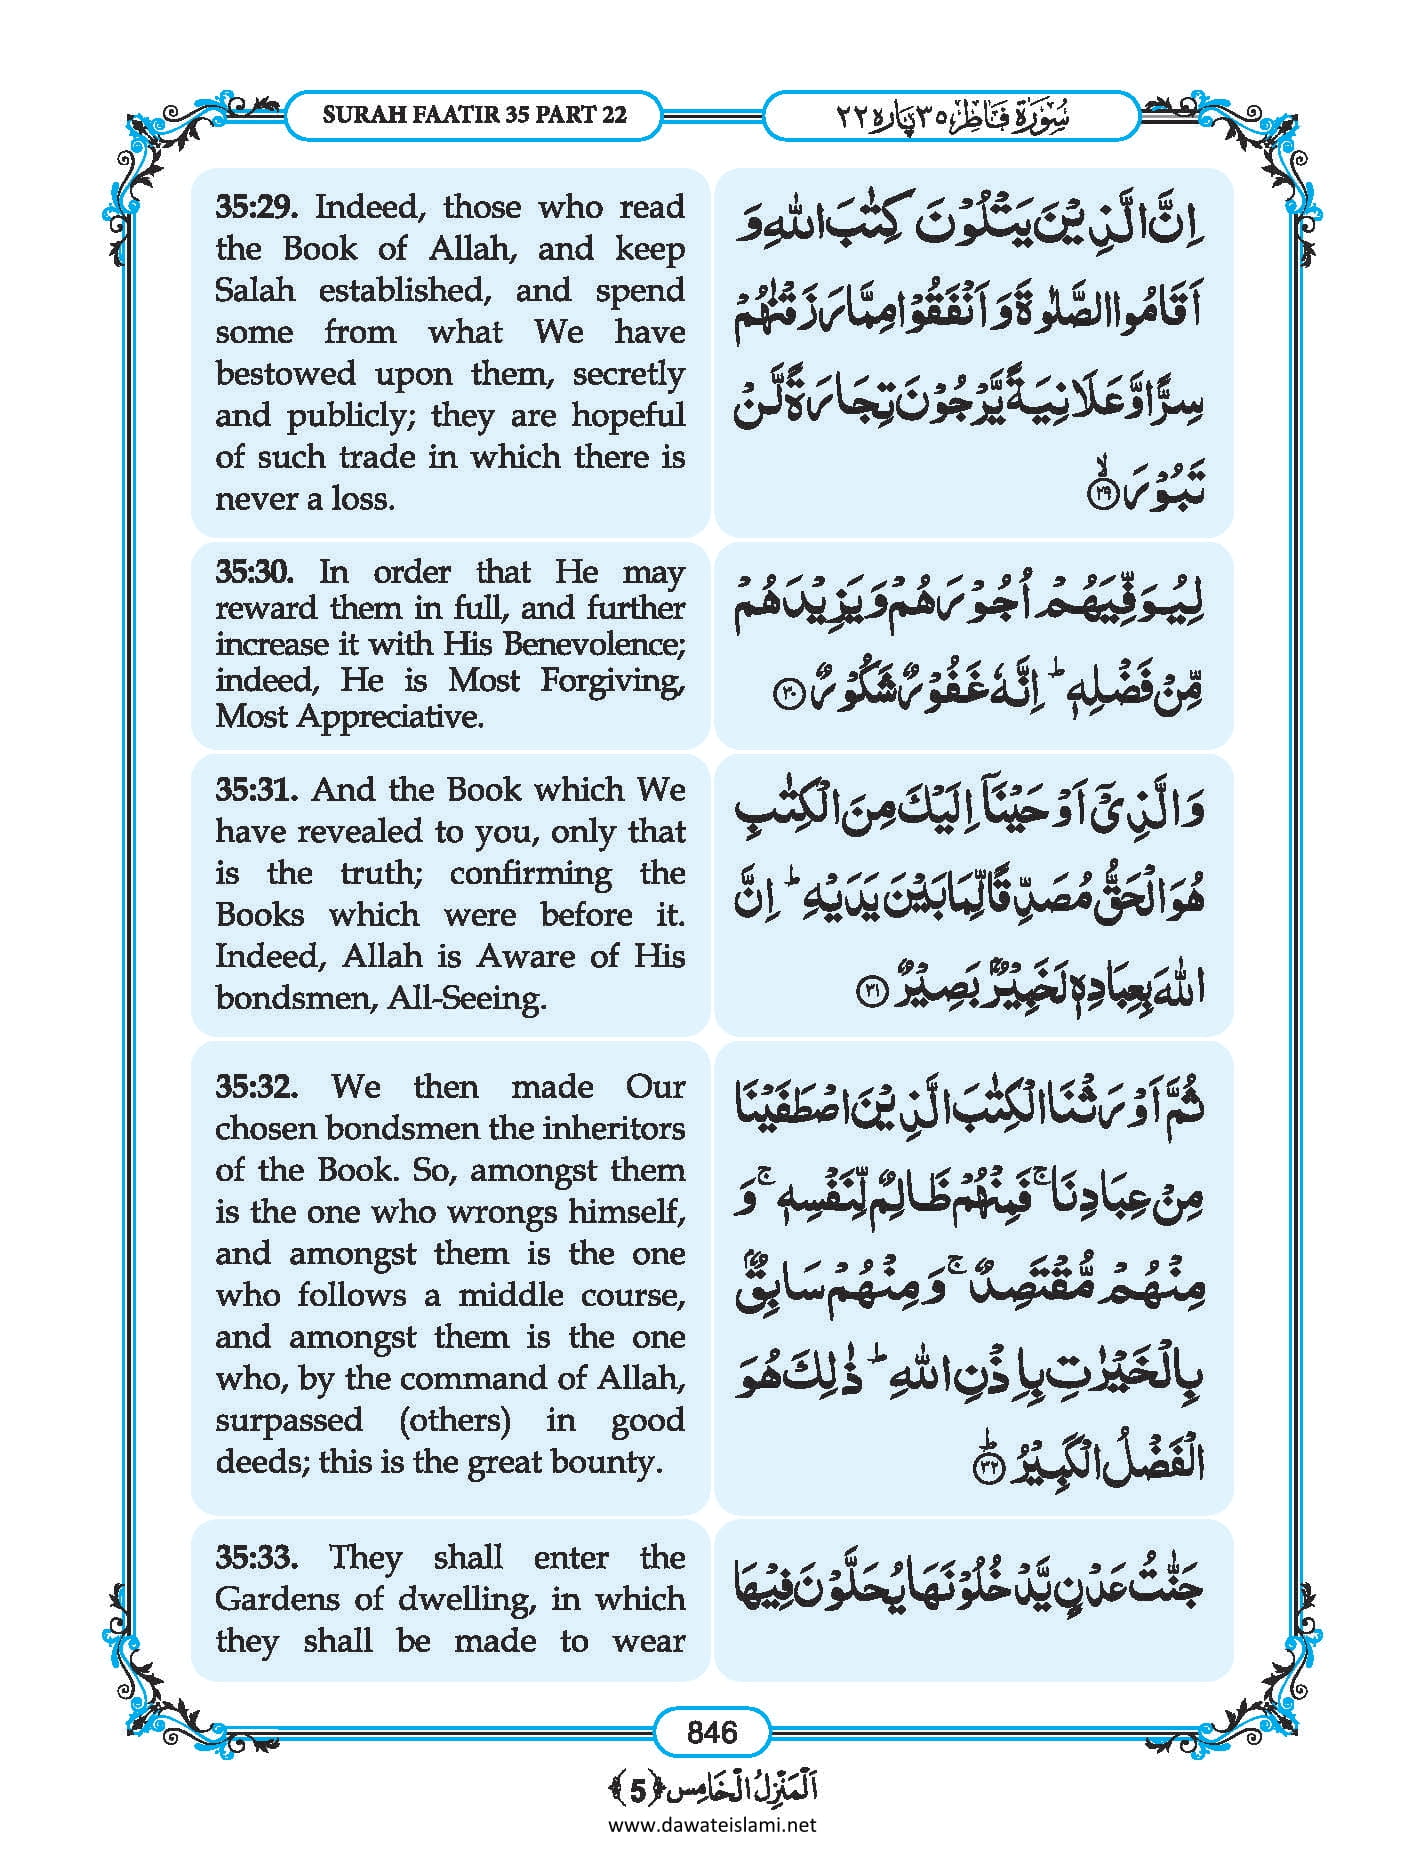 SURAH FAATIR 35 PART 22
سُوۡرَةُ فَاطِر ٣٥ پاره ٢٢
35:29. Indeed, those who read
the Book of Allah, and keep
Salah established, and spend
some from what We have
bestowed upon them, secretly
and publicly; they are hopeful
of such trade in which there is
never a loss.
اِنَّ الَّذِيۡنَ يَتۡلُوۡنَ كِتٰبَ اللّٰهِ وَ
اَقَامُوا الصَّلٰوةَ وَ اَنۡفَقُوۡا مِمَّا رَزَقۡنٰهُمۡ
سِرًّا وَّ عَلَانِيَةً يَّرۡجُوۡنَ تِجَارَةً لَّنۡ
تَبُوۡرَ ۙ﴿۲۹﴾
35:30. In order that He may
reward them in full, and further
increase it with His Benevolence;
indeed, He is Most Forgiving,
Most Appreciative.
لِيُوَفِّيَهُمۡ اُجُوۡرَهُمۡ وَ يَزِيۡدَهُمۡ
مِّنۡ فَضۡلِهٖ ؕ اِنَّهٗ غَفُوۡرٌ شَكُوۡرٌ ﴿۳۰﴾
35:31. And the Book which We
have revealed to you, only that
is the truth; confirming the
Books which were before it.
Indeed, Allah is Aware of His
bondsmen, All-Seeing.
وَ الَّذِيۡۤ اَوۡحَيۡنَاۤ اِلَيۡكَ مِنَ الۡكِتٰبِ
هُوَ الۡحَقُّ مُصَدِّقًا لِّمَا بَيۡنَ يَدَيۡهِ ؕ اِنَّ
اللّٰهَ بِعِبَادِهٖ لَخَبِيۡرٌۢ بَصِيۡرٌ ﴿۳۱﴾
35:32. We then made Our
chosen bondsmen the inheritors
of the Book. So, amongst them
is the one who wrongs himself,
and amongst them is the one
who follows a middle course,
and amongst them is the one
who, by the command of Allah,
surpassed (others) in good
deeds; this is the great bounty.
ثُمَّ اَوۡرَثۡنَا الۡكِتٰبَ الَّذِيۡنَ اصۡطَفَيۡنَا
مِنۡ عِبَادِنَا ۚ فَمِنۡهُمۡ ظَالِمٌ لِّنَفۡسِهٖ ۚ وَ
مِنۡهُمۡ مُّقۡتَصِدٌ ۚ وَ مِنۡهُمۡ سَابِقٌۢ
بِالۡخَيۡرٰتِ بِاِذۡنِ اللّٰهِ ؕ ذٰلِكَ هُوَ
الۡفَضۡلُ الۡكَبِيۡرُ ﴿ؕ۳۲﴾
35:33. They shall enter the
Gardens of dwelling, in which
they shall be made to wear
جَنّٰتُ عَدۡنٍ يَّدۡخُلُوۡنَهَا يُحَلَّوۡنَ فِيۡهَا
846
اَلۡمَنۡزِلُ الۡخَامِس ﴿5﴾
www.dawateislami.net